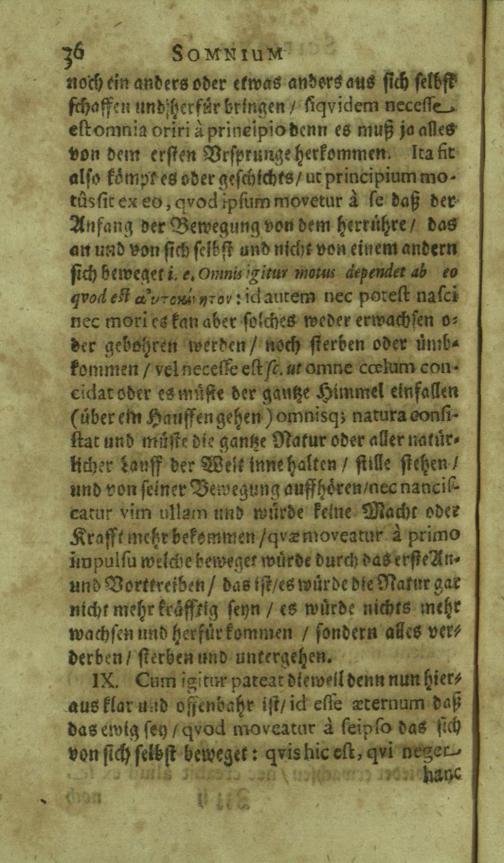 36 SOMNIUM
noch ein anders oder etwas anders aus sich selbst
schaffen und herfür bringen / siqvidem necesse
est omnia oriri à principio denn es muß ja alles
von dem ersten Vrsprunge herkommen. Ita fit
also kömpt es oder geschichts / ut principium mo-
tûs sit ex eo, qvod ipsum movetur à se daß der
Anfang der Bewegung von dem herrühre / das
an und von sich selbst und nicht von einem andern
sich beweget i. e. Omnis igitur motus dependet ab eo
qvod est αὐτοκίνητον: id autem nec potest nasci
nec mori es kan aber solches weder erwachsen o-
der gebohren werden / noch sterben oder ümb-
kommen / vel necesse est sc. ut omne cœlum con-
cidat oder es müste der gantze Himmel einfallen
(über ein Hauffen gehen) omnisq; natura consi-
stat und müste die gantze Natur oder aller natür-
licher Lauff der Welt inne halten / stille stehen /
und von seiner Bewegung auffhören / nec nancis-
catur vim ullam und würde keine Macht oder
Krafft mehr bekommen / qvæ moveatur à primo
impulsu welche beweget würde durch das erste An-
und Vorttreiben / das ist / es würde die Natur gar
nicht mehr kräfftig seyn / es würde nichts mehr
wachsen und herfür kommen / sondern alles ver-
derben / sterben und untergehen.
IX. Cum igitur pateat dieweil denn nun hier-
aus klar und offenbahr ist / id esse æternum daß
das ewig sey / qvod moveatur à seipso das sich
von sich selbst beweget: qvis hic est, qvi neget
hanc